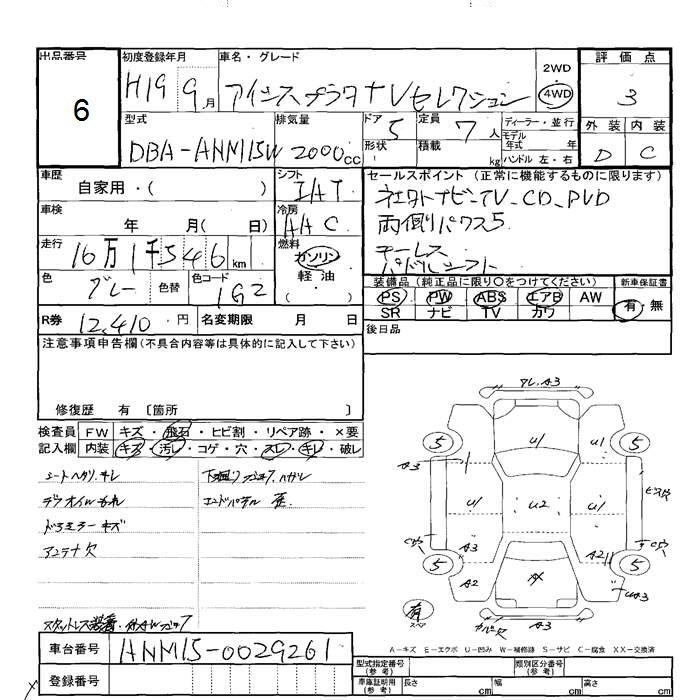 出品番号
6
初度登録年月
H19 9月
車名・グレード
アイシスプラタナVセレクション
2WD
4WD
評価点
3
外装 内装
D C
型式
DBA-ANM15W
排気量
2000cc
ドア 5
形状
定員 7人
積載 kg
ディーラー・並行
モデル
年式 年
ハンドル 左・右
車歴
自家用・( )
シフト
IAT
車検
年 月( 日)
冷房
AAC
走行
16万1千546km
燃料
ガソリン
軽油
( )
色
グレー
色替
色コード
1G2
R券 12,410円
名変期限 月 日
セールスポイント(正常に機能するものに限ります)
TV_CD_DVD
両側パワスラ
キーレス
パドルシフト
装備品(純正品に限り○をつけてください)
PS PW ABS エアB AW
SR ナビ TV カワ
新車保証書
有・無
後日品
注意事項申告欄(不具合内容等は具体的に記入して下さい)
修復歴 有 〔箇所 〕
検査員
記入欄
FW キズ・飛石・ヒビ割・リペア跡・×要
内装 キズ・汚レ・コゲ・穴・スレ・キレ・破レ
シートヘタリ、キレ
デフオイルもれ
ドアミラーキズ
アンテナ欠
エンドパネル 歪
車台番号 ANM15-0029261
登録番号
A3
U1
U1
5
5
A3
U1
U2
U1
A3
A2
5
5
A2
有
スペア
A-キズ E-エクボ U-凹み W-補修跡 S-サビ C-腐食 XX-交換済
型式指定番号
(参考)
類別区分番号
(参考)
車庫証明用
(参考)
長さ cm 幅 cm 高さ cm